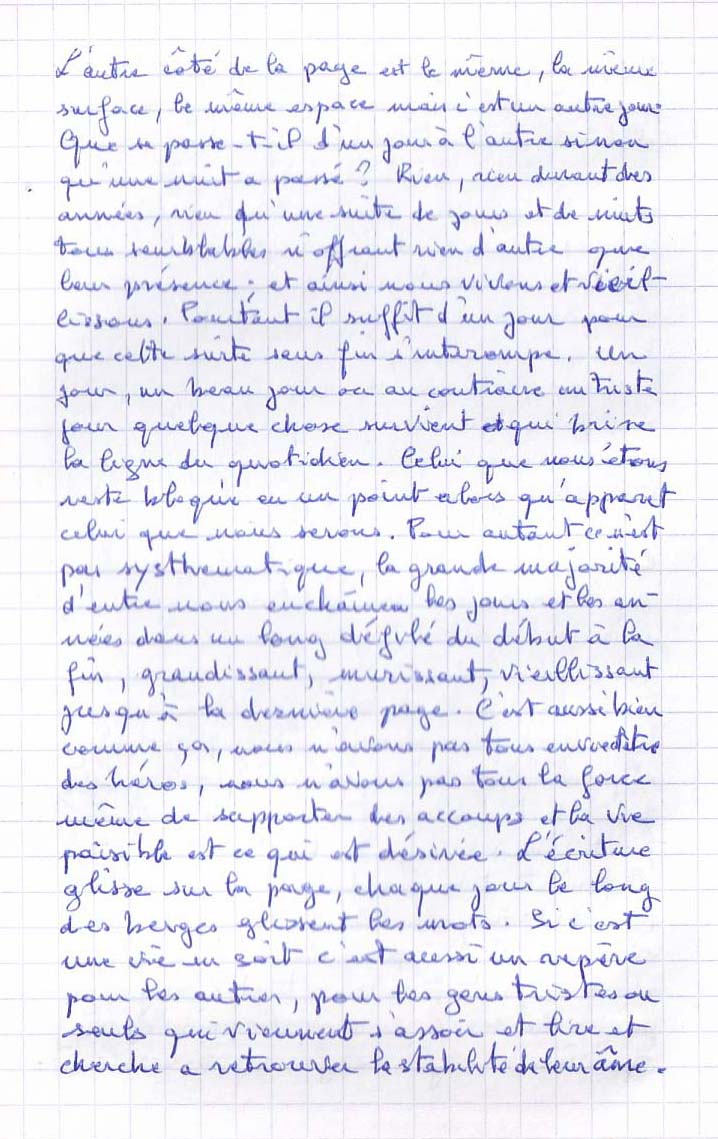 L'autre côté de la page est le même, la même
surface, le même espace mais c'est un autre jour.
Que se passe-t-il d'un jour à l'autre sinon
qu'une nuit a passé ? Rien, rien durant des
années, rien qu'une suite de jours et de nuits
tous semblables n'offrant rien d'autre que
leur présence. et ainsi nous vivons et vieil-
lissons. Pourtant il suffit d'un jour pour
que cette suite sans fin s'interrompe. Un
jour, un beau jour ou au contraire un triste
jour quelque chose survient et qui brise
la ligne du quotidien. Celui que nous étions
reste bloqué en un point alors qu'apparet
celui que nous serons. Pour autant ce n'est
pas systhematique, la grande majorité
d'entre nous enchaînen les jours et les an-
nées dans un long défilé du début à la
fin, grandissant, murissant, vieillissant
jusqu'à la dernière page. C'est aussi bien
comme ça, nous n'avons pas tous envie d'être
des héros, nous n'avons pas tous la force
même de supporter les accoups et la vie
paisible est ce qui est désirée. L'écriture
glisse sur la page, chaque jour le long
des berges glissent les mots. Si c'est
une vie en soit c'est aussi un repère
pour les autres, pour les gens tristes ou
seuls qui viennent s'assoir et lire et
cherche a retrouver la stabilité de leur âme.